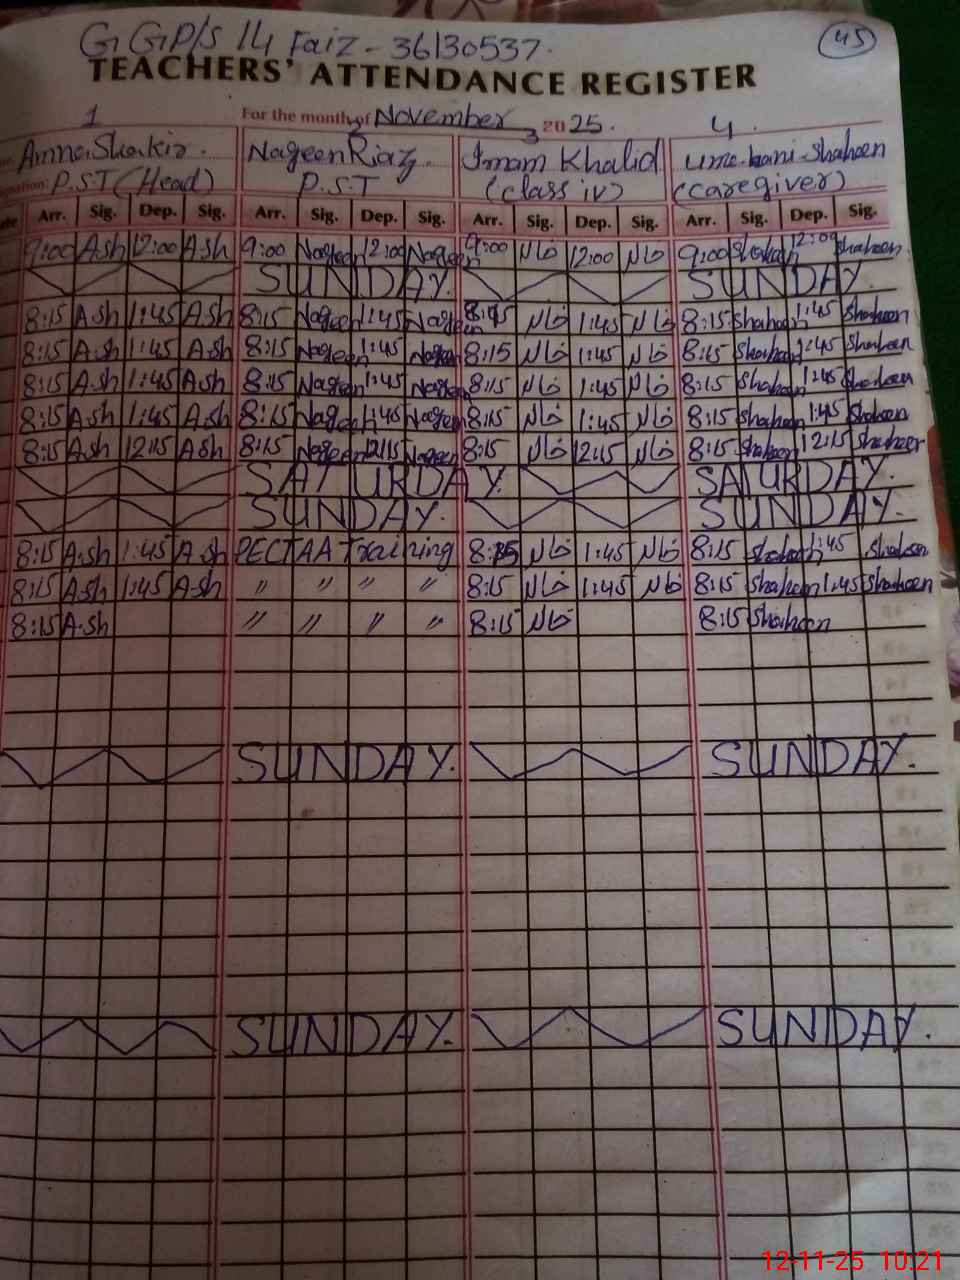 GGP/S 14 Faiz - 36130537. 45
TEACHERS' ATTENDANCE REGISTER
For the month of November 2025.
1 2 3 4.
Amna Shakir. Nageen Riaz. Imam Khalid ume-hani-Shaheen
P.S.T (Head) P.S.T (class iv) (caregiver)
Arr. Sig. Dep. Sig. Arr. Sig. Dep. Sig. Arr. Sig. Dep. Sig. Arr. Sig. Dep. Sig.
9:00 A.sh 12:00 A.sh 9:00 Nageen 12:00 Nageen 9:00 12:00 9:00 Shaheen 12:00 Shaheen
SUNDAY. SUNDAY.
8:15 A.sh 1:45 A.sh 8:15 Nageen 1:45 Nageen 8:15 1:45 8:15 Shaheen 1:45 Shaheen
8:15 A.sh 1:45 A.sh 8:15 Nageen 1:45 Nageen 8:15 1:45 8:15 Shaheen 1:45 Shaheen
8:15 A.sh 1:45 A.sh 8:15 Nageen 1:45 Nageen 8:15 1:45 8:15 Shaheen 1:45 Shaheen
8:15 A.sh 1:45 A.sh 8:15 Nageen 1:45 Nageen 8:15 1:45 8:15 Shaheen 1:45 Shaheen
8:15 A.sh 12:15 A.sh 8:15 Nageen 12:15 Nageen 8:15 12:15 8:15 Shaheen 12:15 Shaheen
SATURDAY. SATURDAY.
SUNDAY. SUNDAY.
8:15 A.sh 1:45 A.sh PECTAA Training 8:15 1:45 8:15 Shaheen 1:45 Shaheen
8:15 A.sh 1:45 A.sh " " " " 8:15 1:45 8:15 Shaheen 1:45 Shaheen
8:15 A.sh " " " " 8:15 8:15 Shaheen
SUNDAY. SUNDAY.
SUNDAY. SUNDAY.
12-11-25 10:21